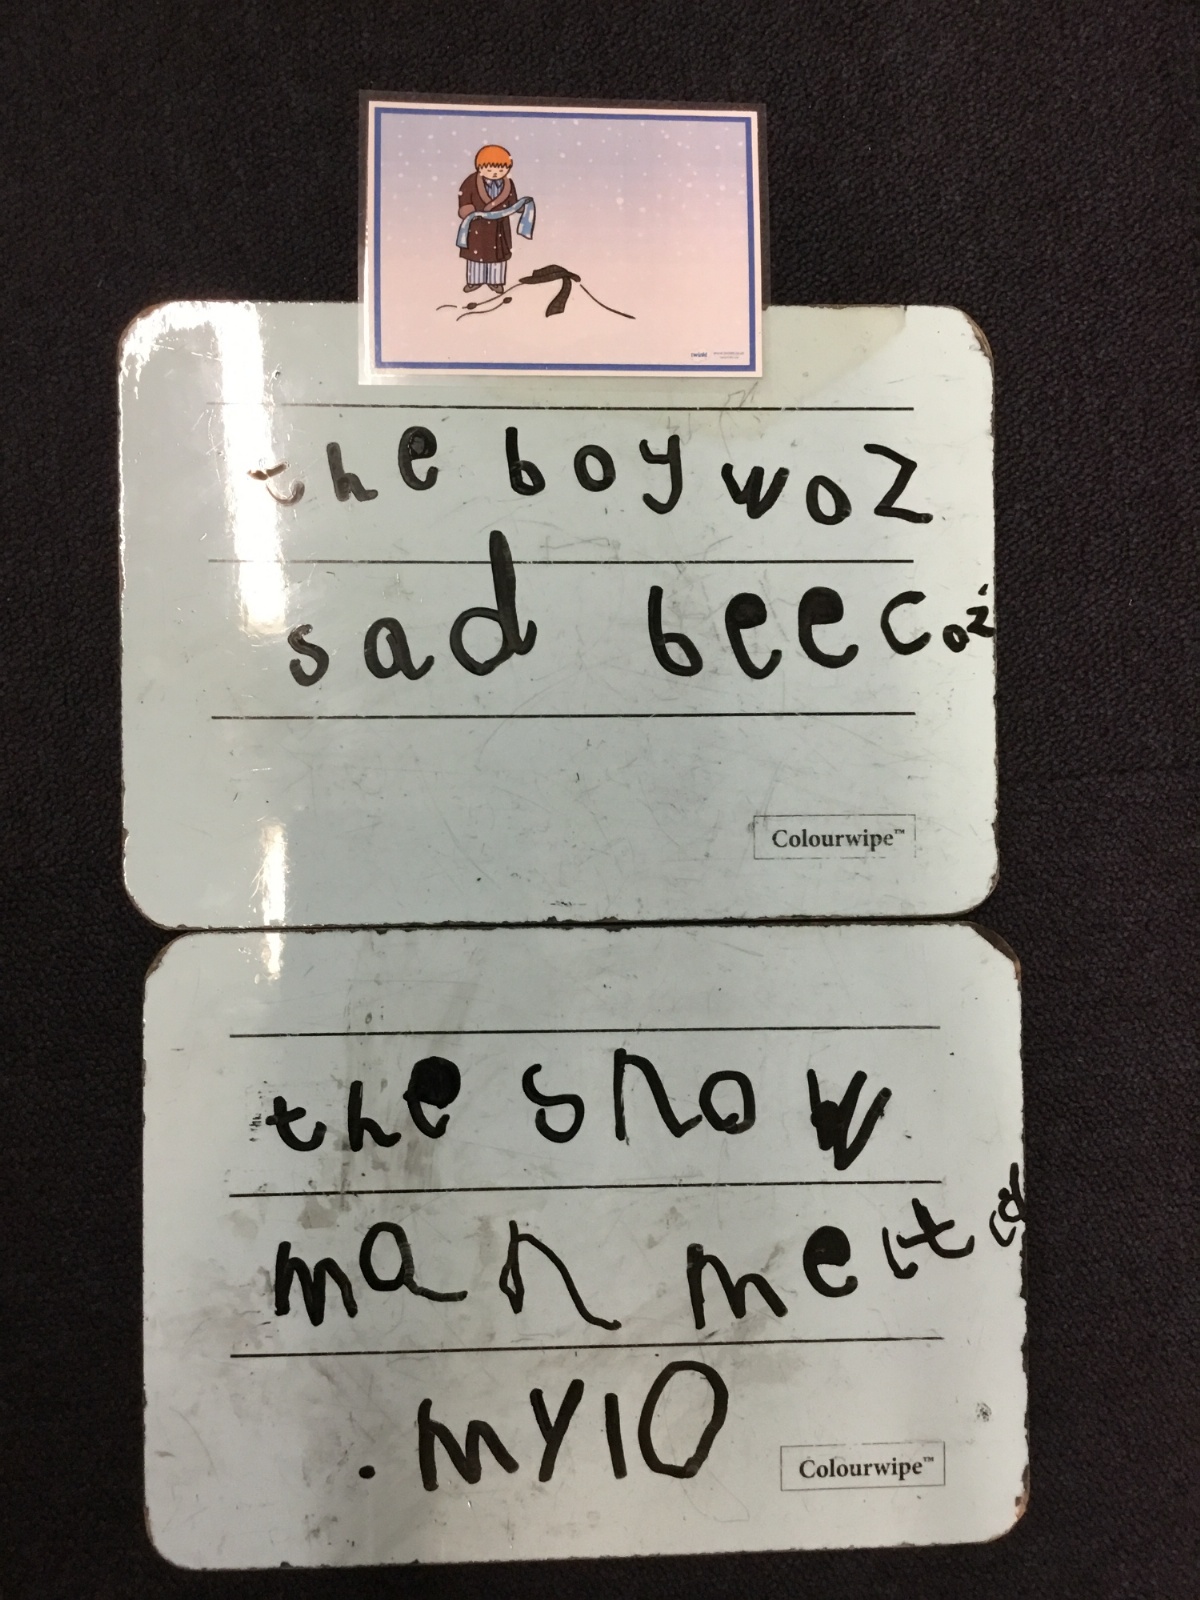 the boy woz
sad beecoz
Colourwipe™
the snow
man melted
. mylo
Colourwipe™